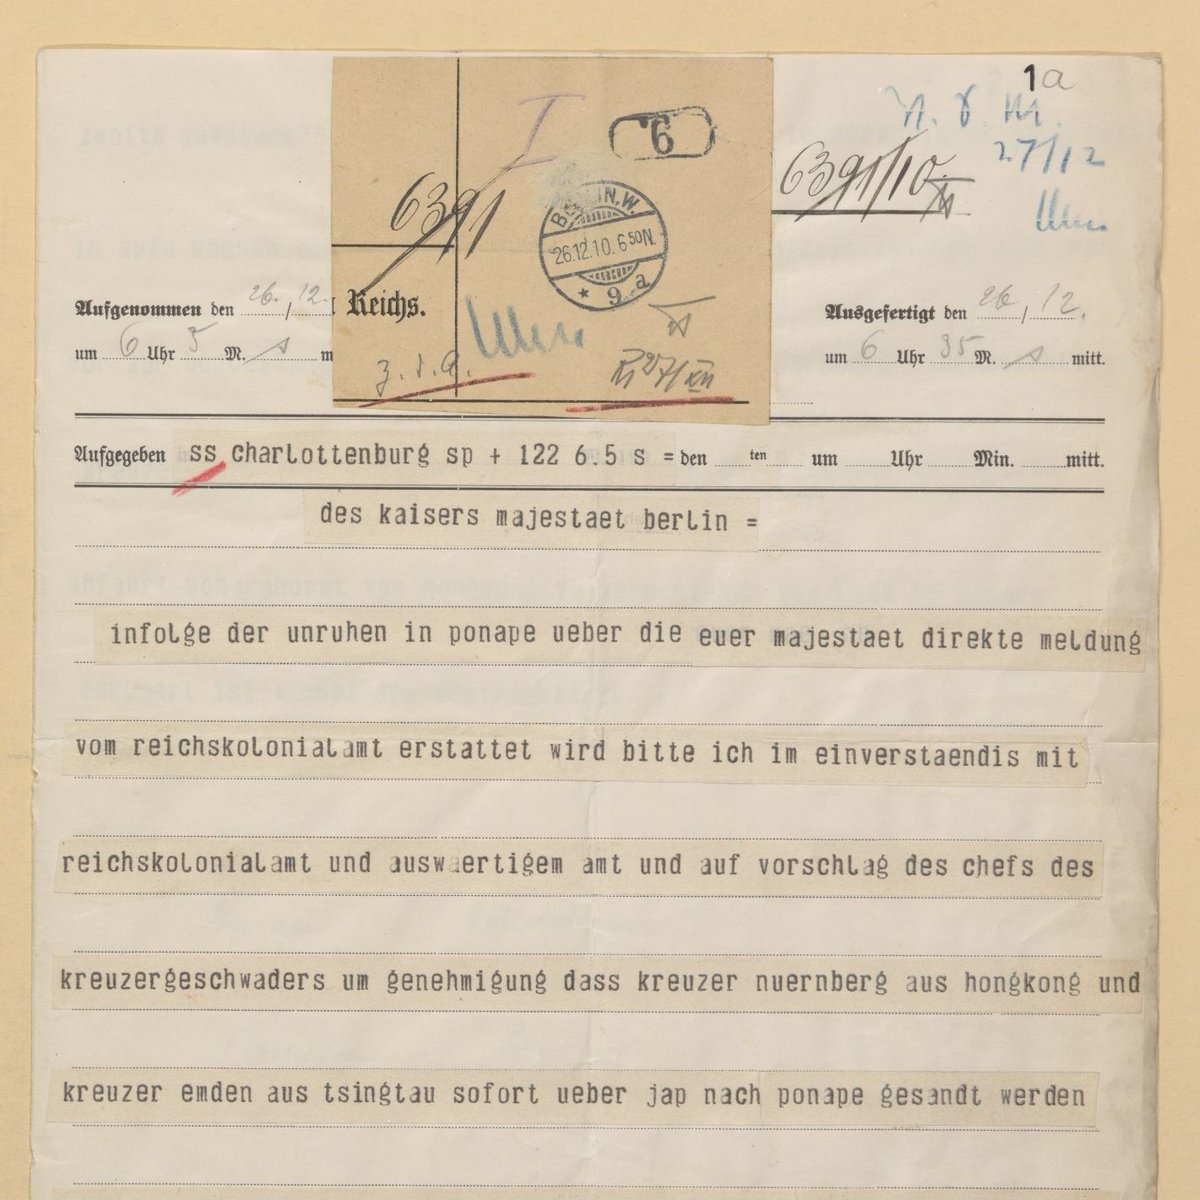 1a
I
6
27/12
6391/10
6391
BERLIN.W.
26.12.10. 6 50N.
* 9. a
Aufgenommen den 26., 12.
Reichs.
Ausgefertigt den 26, 12.
um 6 Uhr 5 M. s m
um 6 Uhr 35 M. s mitt.
z. d. A.
27/XII
Aufgegeben ss charlottenburg sp + 122 6.5 s = den ten um Uhr Min. mitt.
des kaisers majestaet berlin =
infolge der unruhen in ponape ueber die euer majestaet direkte meldung
vom reichskolonialamt erstattet wird bitte ich im einverstaendis mit
reichskolonialamt und auswaertigem amt und auf vorschlag des chefs des
kreuzergeschwaders um genehmigung dass kreuzer nuernberg aus hongkong und
kreuzer emden aus tsingtau sofort ueber jap nach ponape gesandt werden